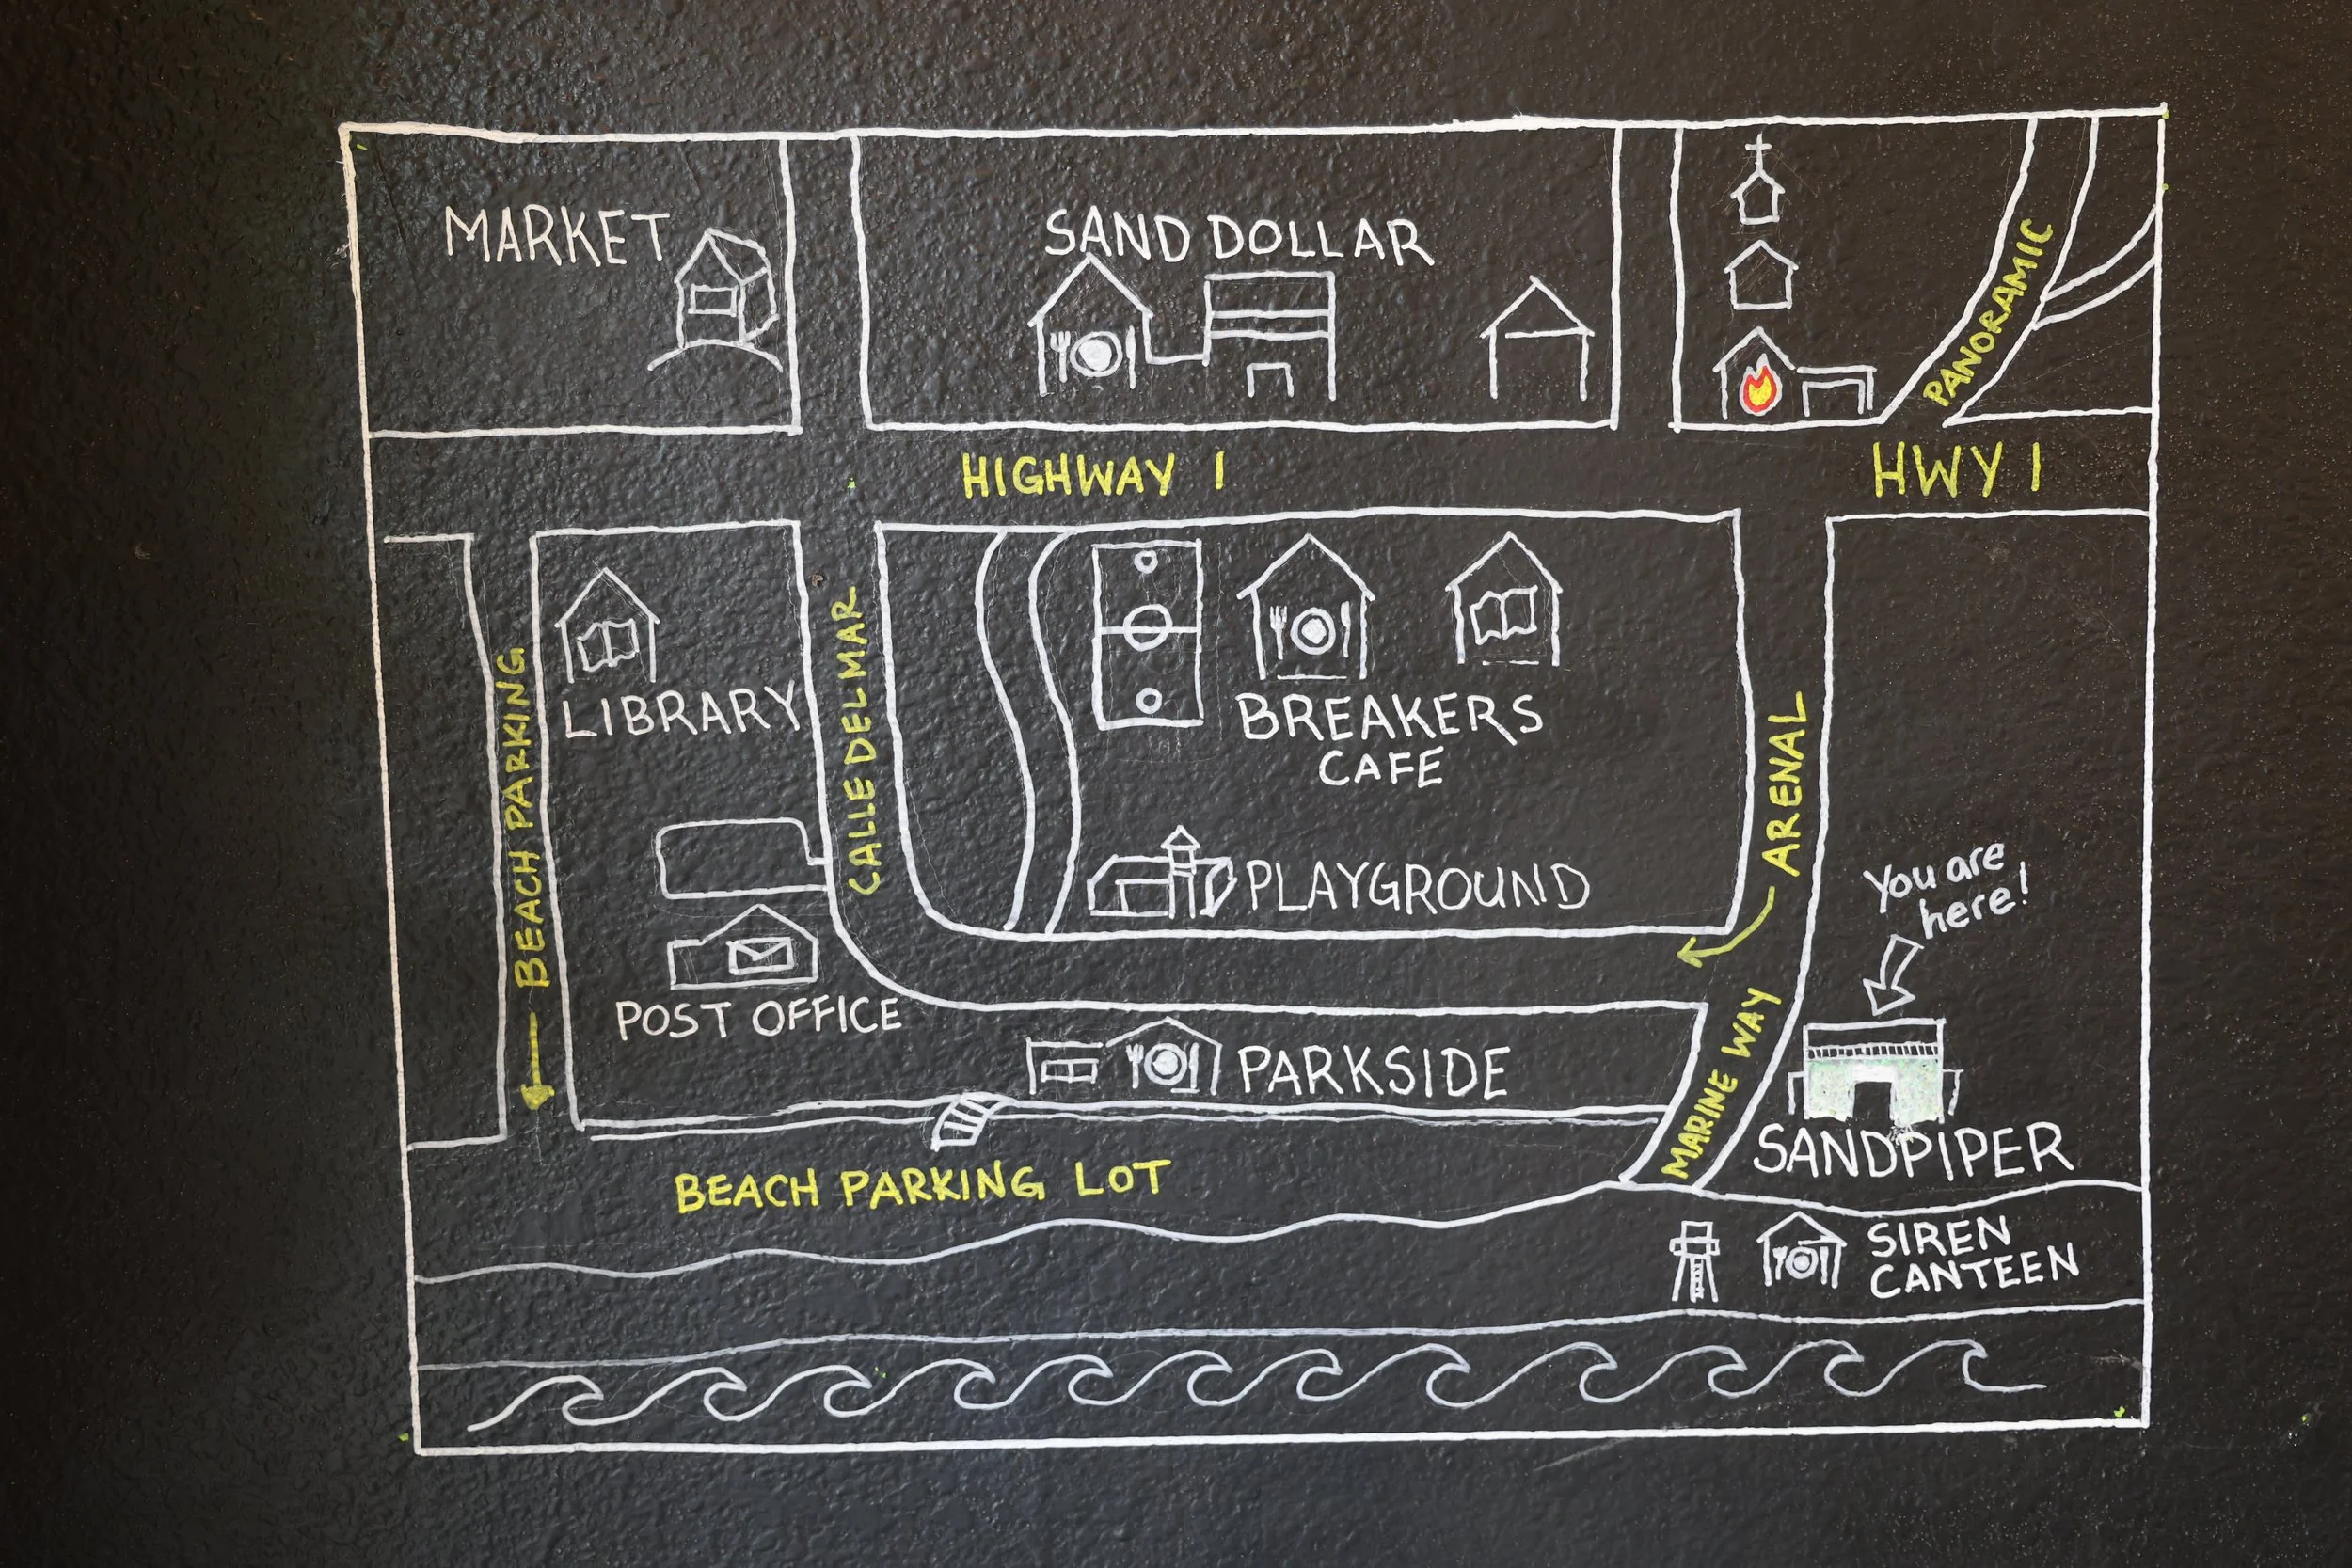 MARKET
SAND DOLLAR
PANORAMIC
HIGHWAY 1
HWY 1
LIBRARY
BEACH PARKING
CALLE DEL MAR
BREAKERS
CAFE
ARENAL
PLAYGROUND
You are
here!
POST OFFICE
PARKSIDE
MARINE WAY
SANDPIPER
BEACH PARKING LOT
SIREN
CANTEEN